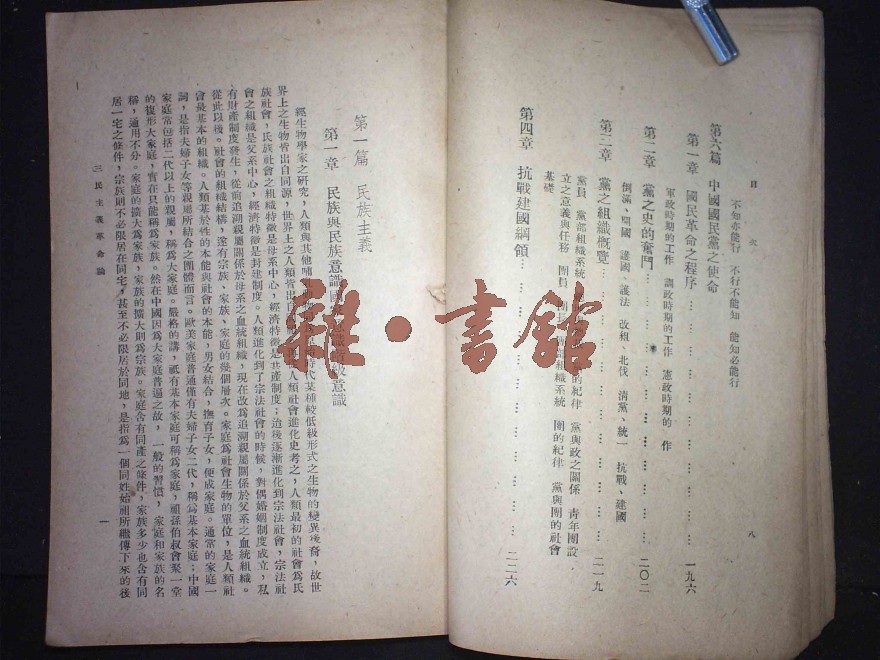 目 次
八
不知亦能行 不行不能知 能知必能行
第六篇 中國國民黨之使命
第一章 國民革命之程序………………………一九六
軍政時期的工作 訓政時期的工作 憲政時期的 作
第二章 黨之史的奮鬥………………………二〇二
倒滿、 國 護國、護法 改組、北伐 清黨、統一 抗戰、建國
第三章 黨之組織概覽………………………二一九
黨員 黨部組織系統 的紀律 黨與政之關係 青年團設
立之意義與任務 團員 團 組織系統 團的紀律 黨與團的社會
基礎
第四章 抗戰建國綱領………………………二二六
第一篇 民族主義
第一章 民族與民族意識國 意識階級意識
經生物學家之研究，人類與其他哺 時代某種較低級形式之生物的變異後裔，故世
界上之生物皆出自同源，世界上之人類皆出自 人類社會進化史考之，人類最初的社會爲氏
族社會，氏族社會之組織特徵是母系中心，經濟特徵是共產制度；迨後逐漸進化到宗法社會，宗法社
會之組織是父系中心，經濟特徵是封建制度。人類進化到了宗法社會的時候，對偶婚姻制度成立，私
有財產制度發生，從前追溯親屬關係於母系之血統組織，現在改爲追溯親屬關係於父系之血統組織。
從此以後。社會的組織結構，遂有宗族、家族、家庭的幾個層次。家庭爲社會生物的單位，是人類社
會最基本的組織。人類基於性的本能與社會的本能，男女結合，撫育子女，便成家庭。通常的家庭一
詞，是指夫婦子女等親屬所結合之團體而言。歐美家庭普通僅有夫婦子女二代，稱爲基本家庭；中國
家庭常包括二代以上的親屬，稱爲大家庭。嚴格的講，祇有基本家庭可稱爲家庭，祖孫伯叔會聚一堂
的複形大家庭，實在只能稱爲家族。然在中國因爲大家庭普遍之故，一般的習慣，家庭和家族的名
稱，通用不分。家庭的擴大爲家族，家族的擴大則爲宗族。家庭含有同產之條件，家族多少也含有同
居一宅之條件，宗族則不必限居在同宅，甚至不必限居於同地，是指爲一個同姓始祖所繼傳下來的後
三民主義革命論
一
雜·書館